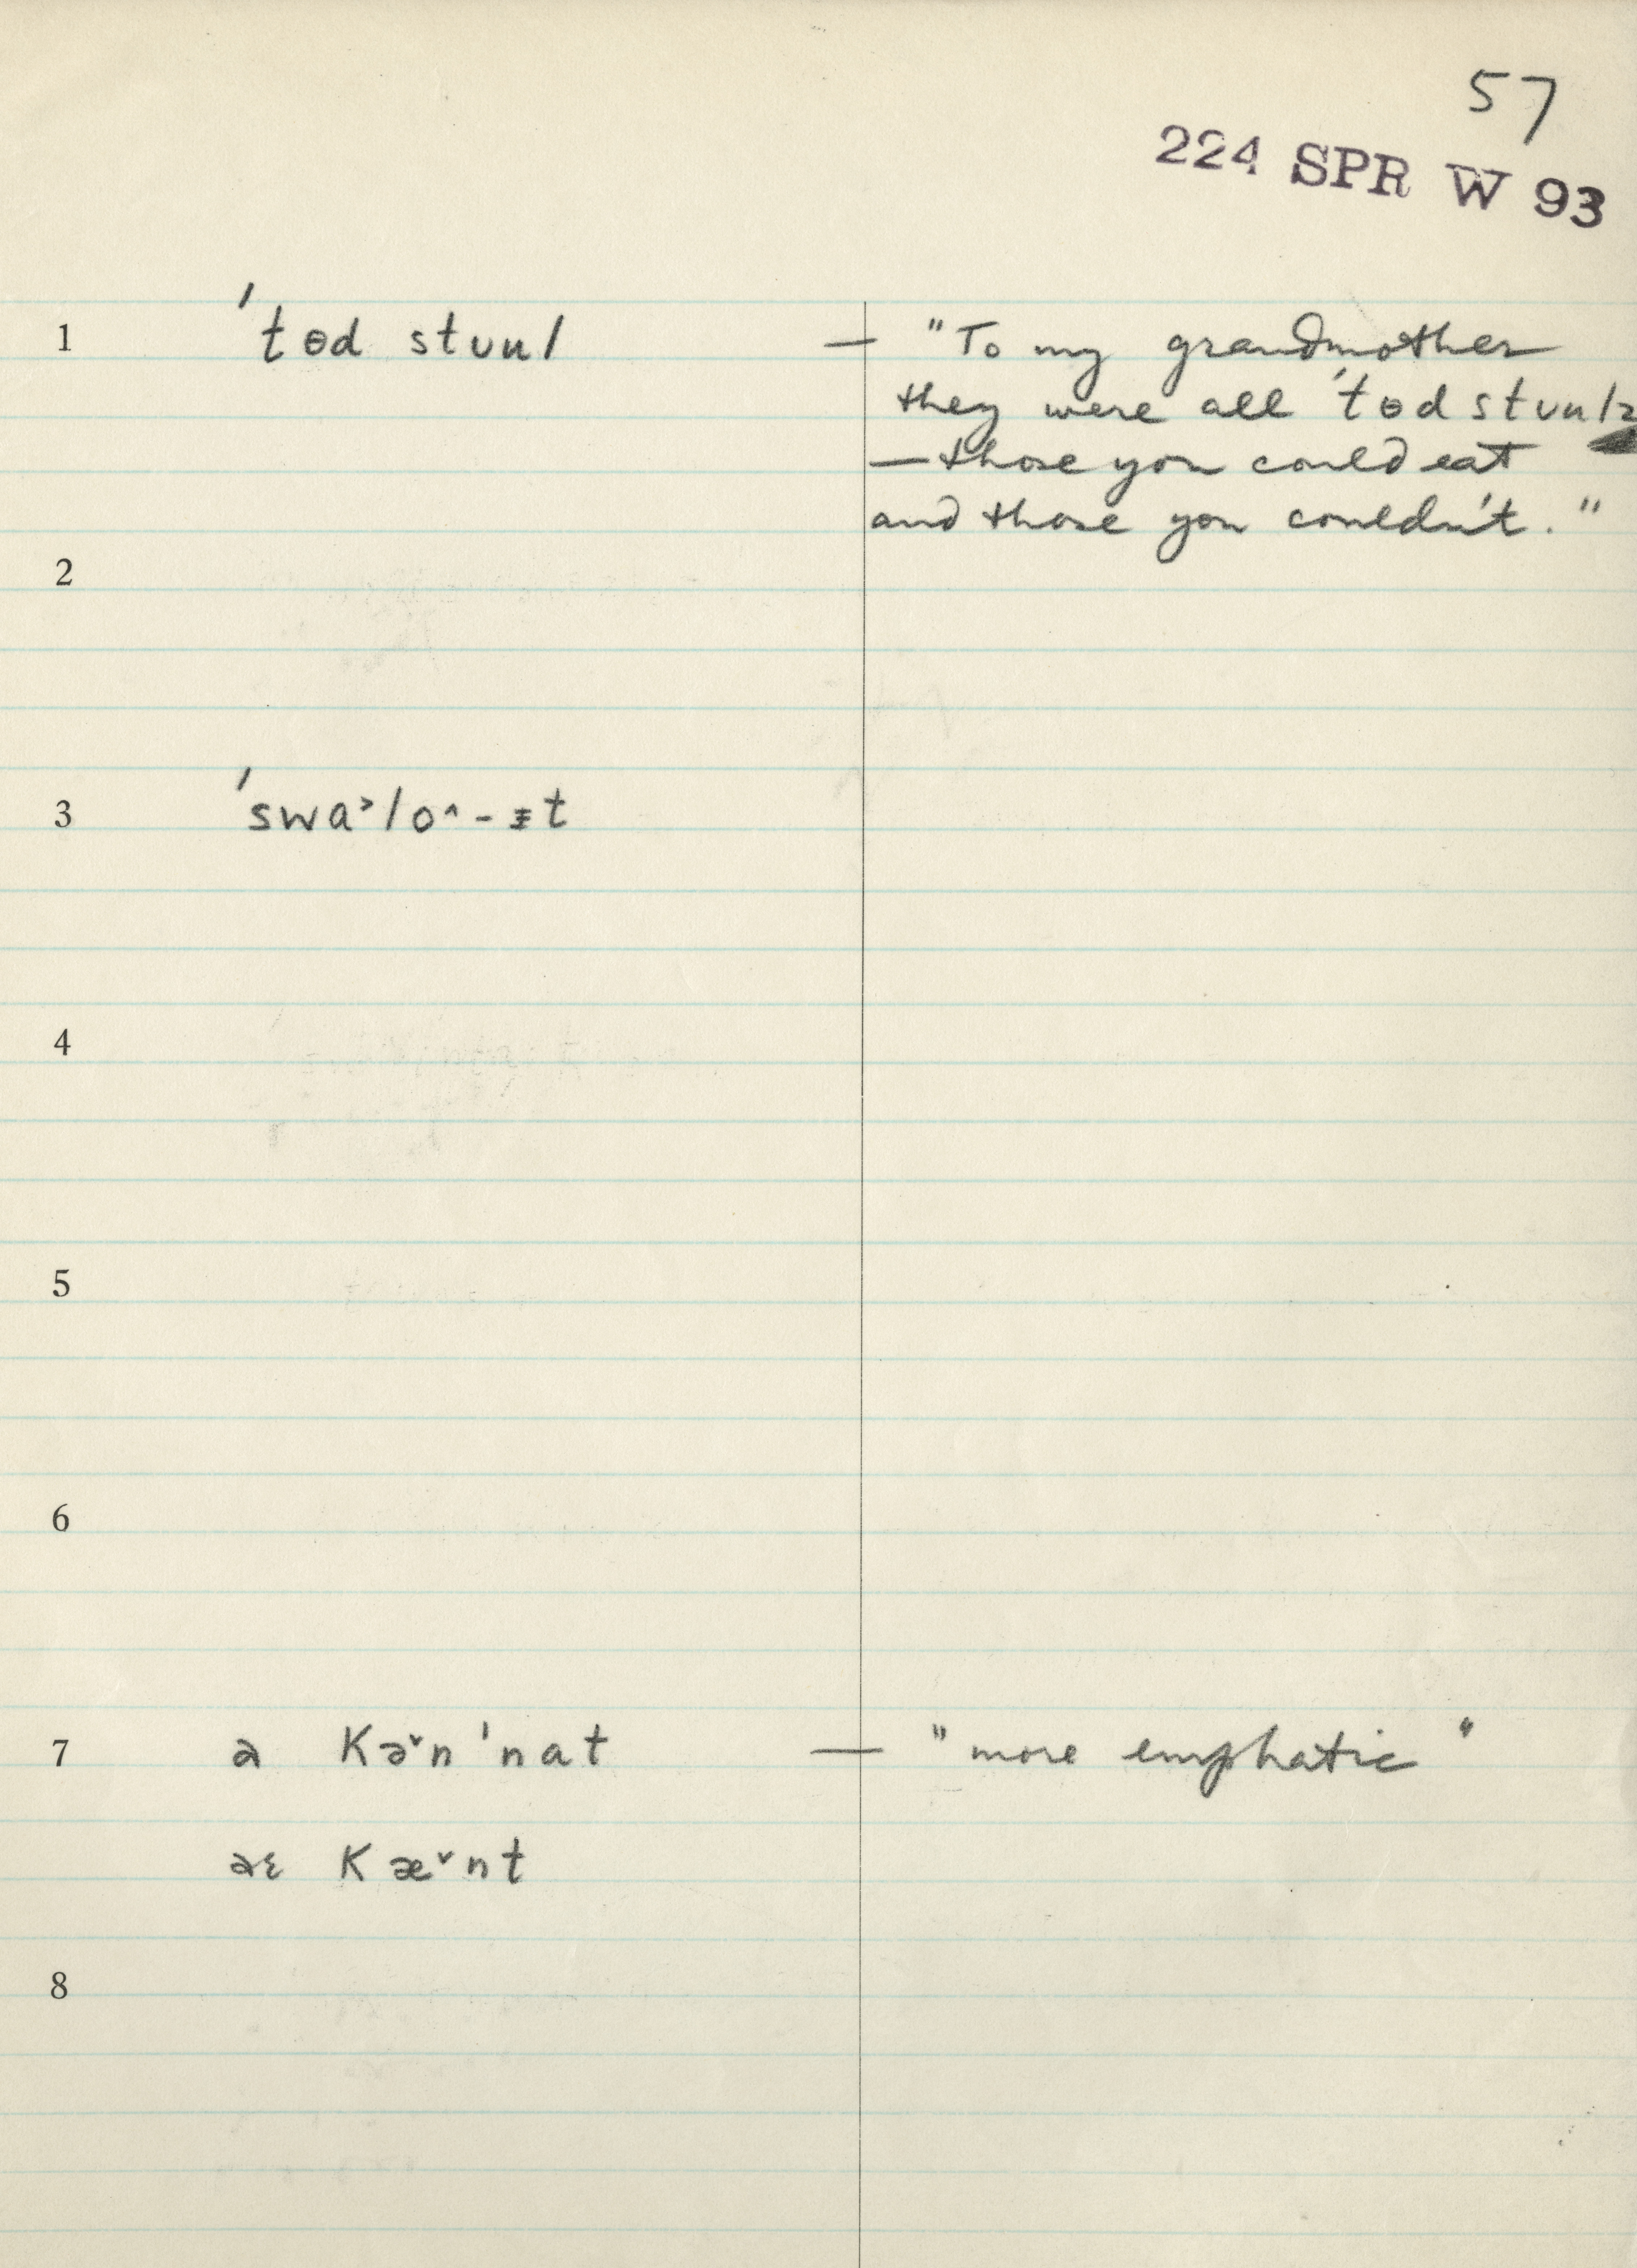 57
224 SPR W 93
1 ˈtɵd stuul — "To my grandmother
they were all ˈtɵd stuulz
— those you could eat
and those you couldn't."
2
3 ˈswa˃lo^-ɪt
4
5
6
7 ə kə˅n ˈnat — "more emphatic"
aɛ kæ˅nt
8